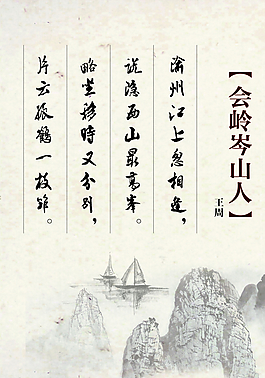 【会岭岑山人】
王周
渝州江上忽相逢，
說隐西山最高峯。
略坐移時又分别，
片云孤鹤一枝筇。